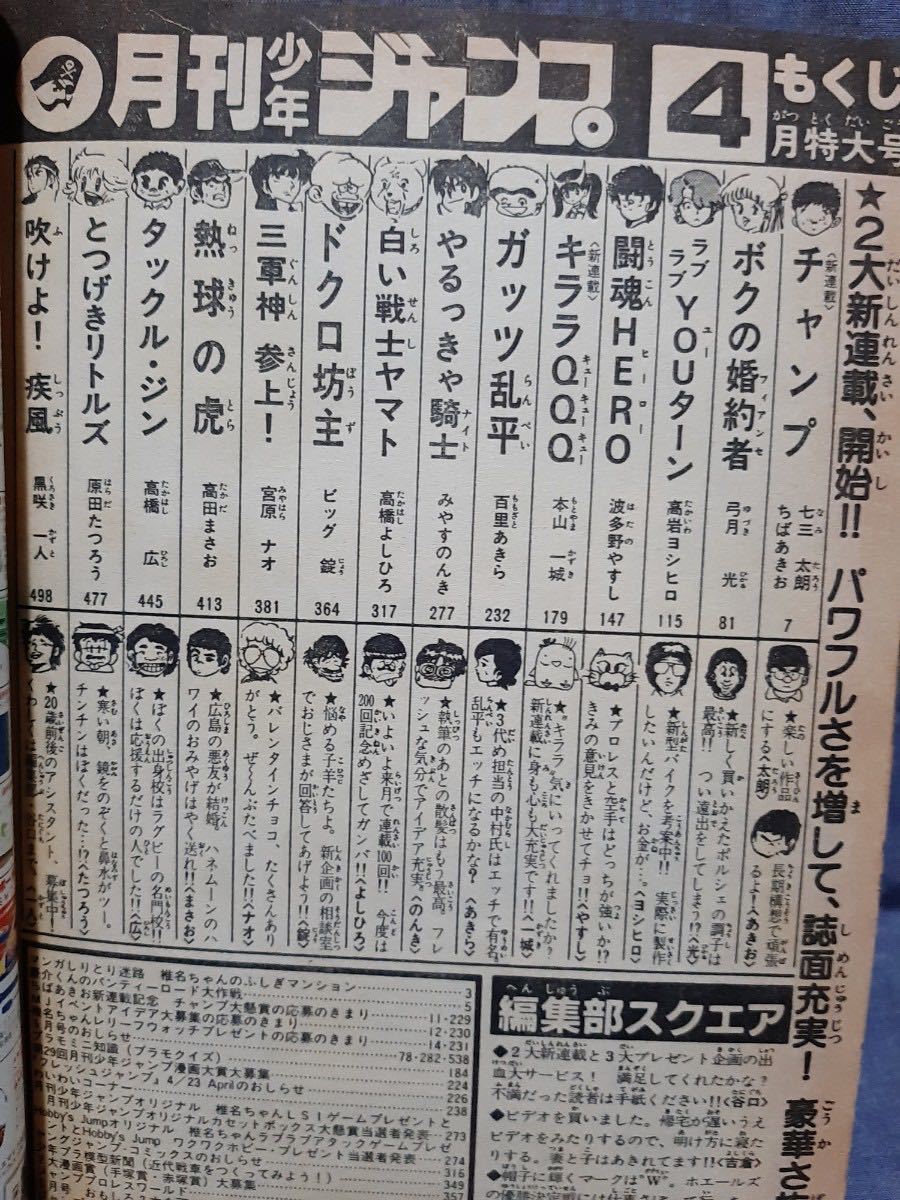 月刊少年ジャンプ
4
もくじ
月特大号
★2大新連載、開始!! パワフルさを増して、誌面充実! 豪華さ
〈新連載〉
チャンプ 七三太朗 ちばあきお 7
ボクの婚約者 弓月光 81
ラブラブYOUターン 高岩ヨシヒロ 115
闘魂HERO 波多野やすし 147
〈新連載〉
キララQQQ 本山一城 179
ガッツ乱平 百里あきら 232
やるっきゃ騎士 みやすのんき 277
白い戦士ヤマト 高橋よしひろ 317
ドクロ坊主 ビッグ錠 364
三軍神参上! 宮原ナオ 381
熱球の虎 高田まさお 413
タックル・ジン 高橋広 445
とつげきリトルズ 原田たつろう 477
吹けよ!疾風 黒咲一人 498
★楽しい作品にする〈太朗〉
長期構想で頑張るよ!〈あきお〉
★新しく買いかえたポルシェの調子は最高!! つい遠出をしてしまう!?〈光〉
★新型バイクを考案中!! 実際に製作したいんだけど、お金が…。〈ヨシヒロ〉
★プロレスと空手はどっちが強いか!? きみの意見をきかせてチョ!!〈やすし〉
★“キララ”気にいってくれましたか? 新連載に身も心も大充実です!!〈一城〉
★3代め担当の中村氏はエッチで有名。乱平もエッチになるかな?〈あきら〉
★執筆のあとの散髪はもう最高。フレッシュな気分でアイデア充実。〈のんき〉
★いよいよ来月で連載100回!! 今度は200回記念めざしてガンバ!!〈よしひろ〉
★悩める子羊たちよ。新企画の相談室でおじさまが回答してあげよう!!〈錠〉
★バレンタインチョコ、たくさんありがとう。ぜ〜んぶたべました!!〈ナオ〉
★広島の悪友が結婚。ハネムーンのハワイのおみやげはやく送れ!!〈まさお〉
★ぼくの出身校はラグビーの名門校!! ぼくは応援するだけの人でした!!〈広〉
★寒い朝、鏡をのぞくと鼻水がツー。チンチンはぼくだった…!?〈たつろう〉
★20歳前後のアシスタント、募集中!
〈一人〉
ンガしりとり迷路 椎名ちゃんのふしぎマンション 3
介くんのパンティーロード大作戦 5
ちばあきお新連載記念 チャンプ大懸賞の応募のきまり 11・229
MJイベントアイデア大募集の応募のきまり 12・230
椎名ちゃんレリーフウォッチプレゼントの応募のきまり 14・231
月号のおしらせ 78・282・538
プラモミニ知識(プラモクイズ) 184
29回月刊少年ジャンプ漫画大賞大募集 224
フレッシュジャンプ』4/23 Aprilのおしらせ 226
わいわいコーナー 238
月刊少年ジャンプオリジナル 椎名ちゃんLSIゲームプレゼントと
月刊少年ジャンプオリジナルカセットボックス大懸賞当選者発表 273
Hobby's Jumpオリジナル 椎名ちゃんラブラブアタックゲームプレゼ
ントとHobby's Jump ワクワクホビー・プレゼント当選者発表 274
ングジャンプ・コミックスのおしらせ 316
少年プラ模型新聞(近代戦車をつくってみよう!) 349
大漫画賞(手塚賞・赤塚賞)大募集 357
編集部スクエア
◆2大新連載と3大プレゼント企画の出血大サービス! 満足してくれたかな? 不満だった読者は手紙ください!!〈谷口〉
◆ビデオを買いました。帰宅が遅いうえビデオをみたりするので、明け方に寝たりする。妻と子はあきれてます!!〈吉倉〉
◆帽子に輝くマークは“W”。ホエールズ